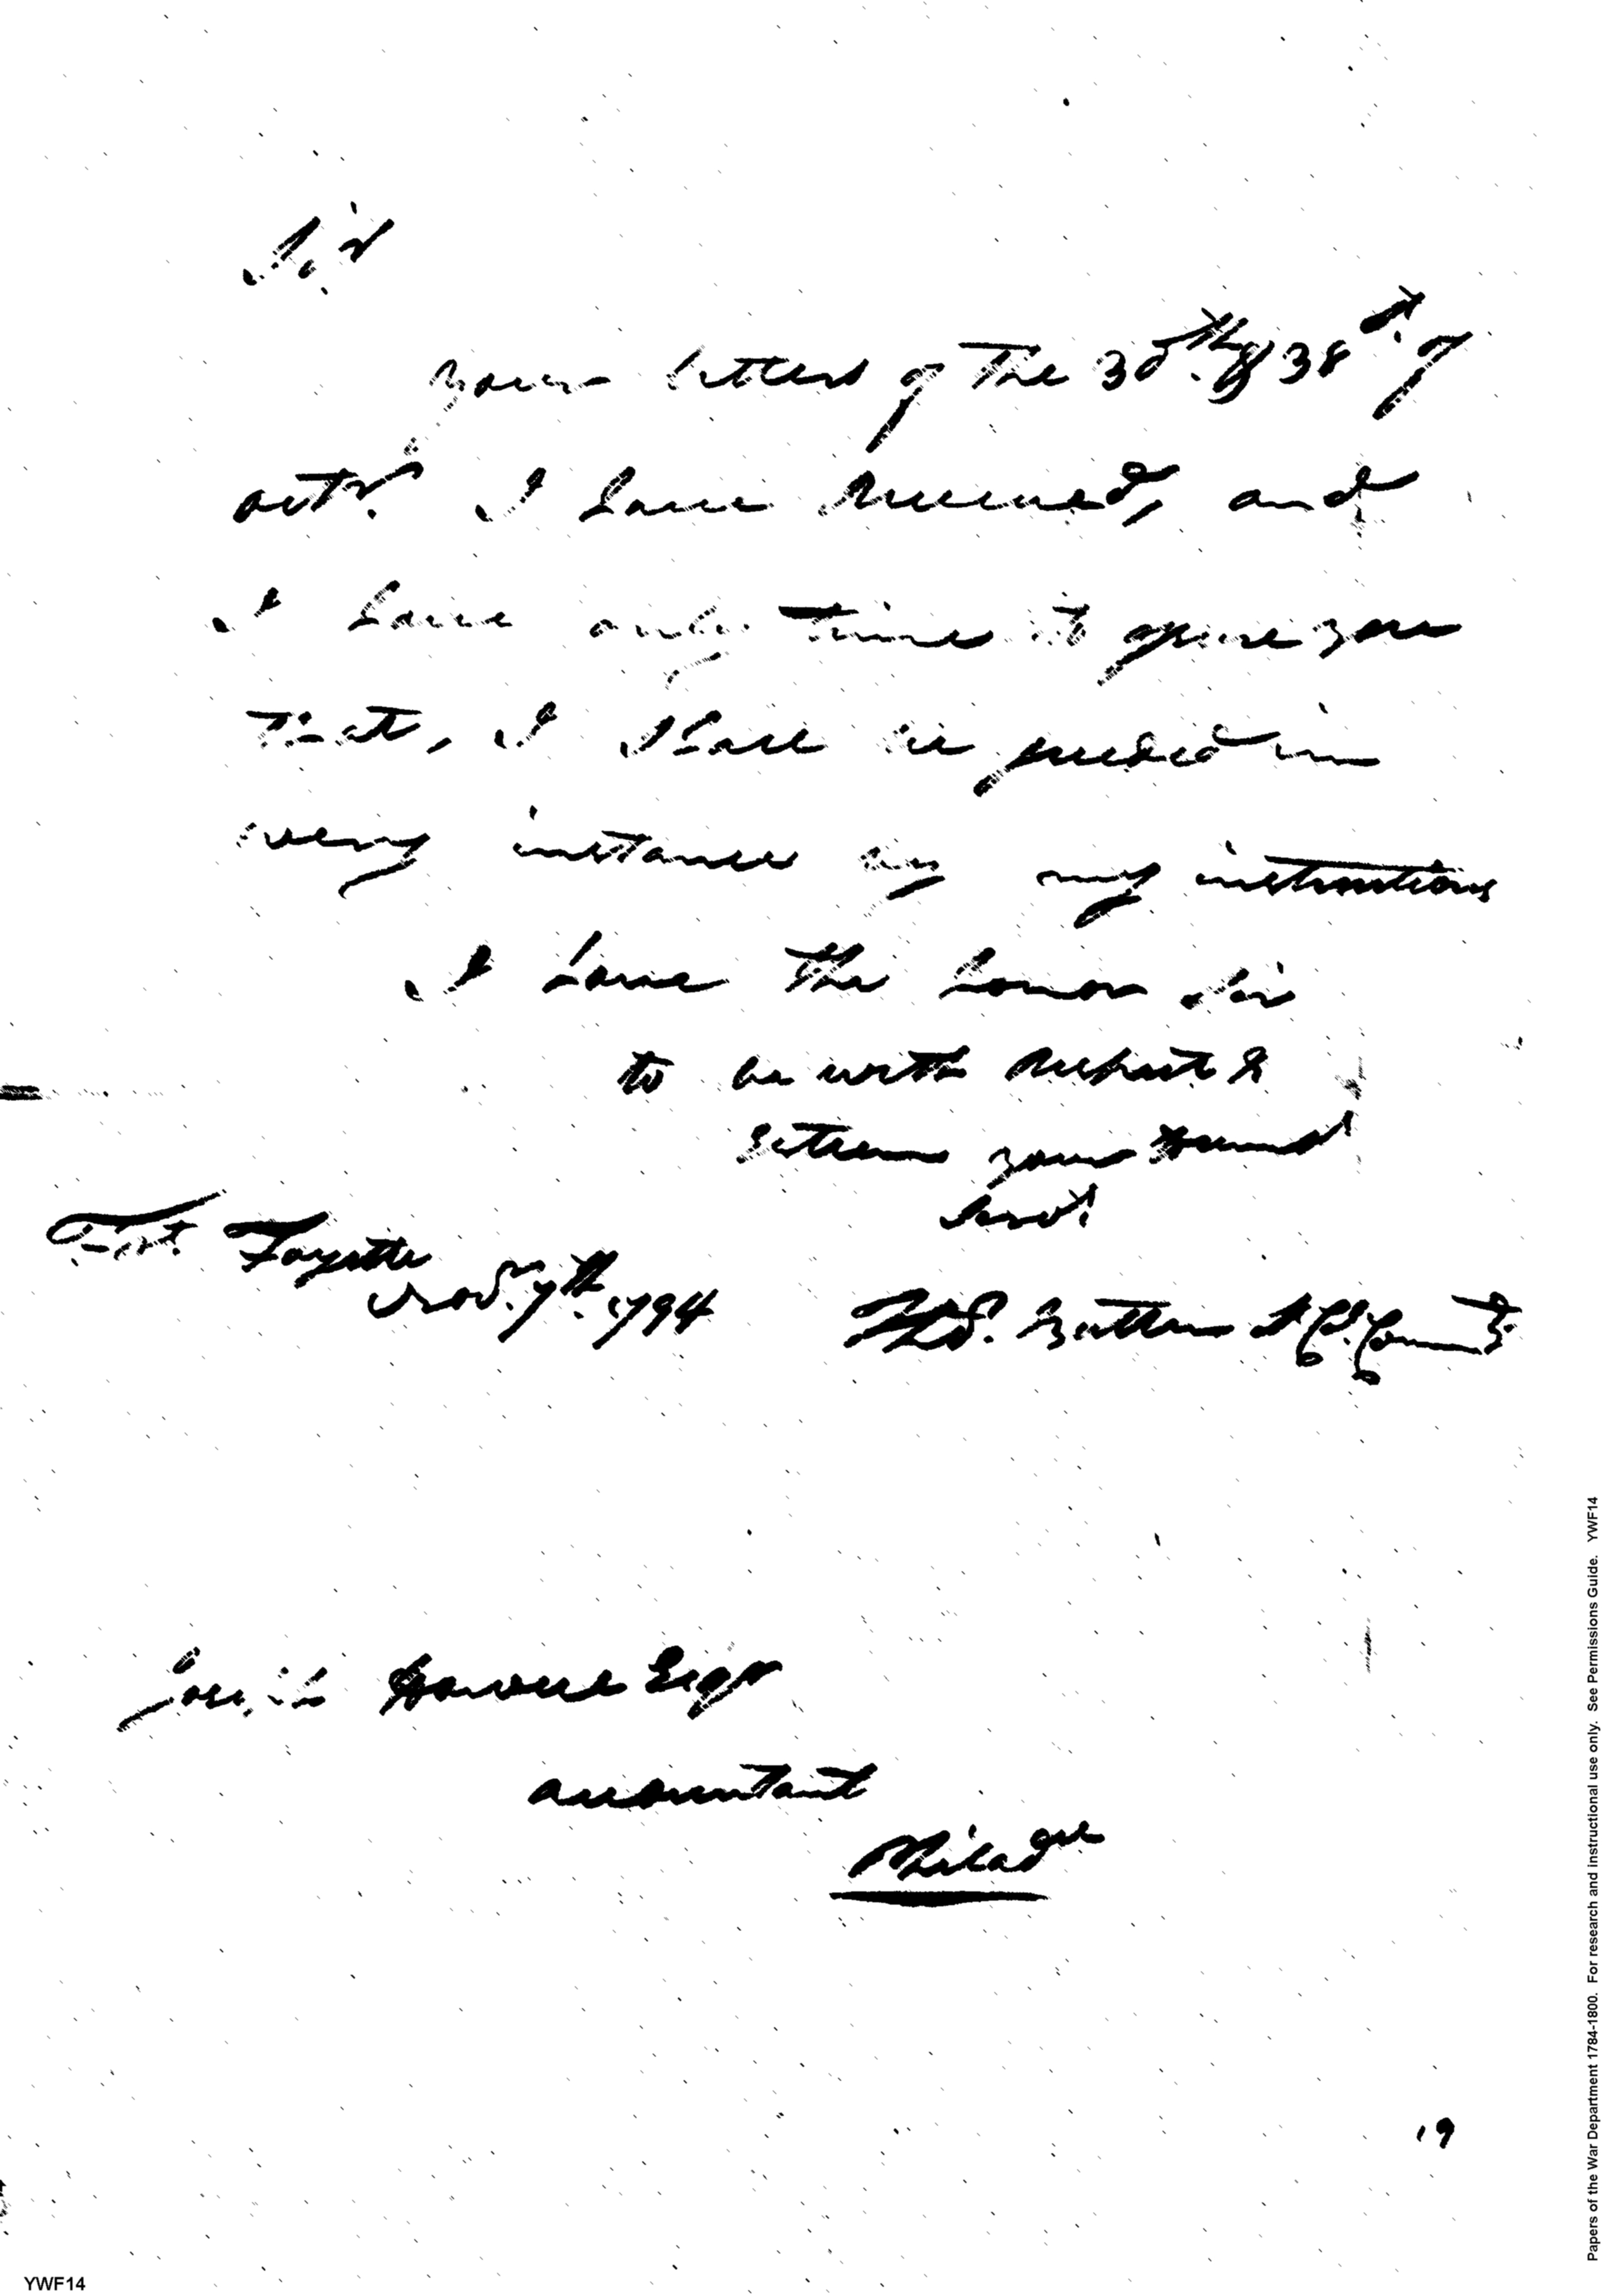 Sir
your letters of The 30th. & 38th. of
octr. I have received, and
I have only time to assure you
That, I shall be guided in
every instance by my instructions
I have the honor Sir
to be with respect &
Esteem your Humbl
Servt.
Fort Fayette
Novr. 7th. 1794
Thos. Butler Lt Col. Commdt.
Joseph Howell Esqr
accountant
Philade
19
YWF14
Papers of the War Department 1784-1800. For research and instructional use only. See Permissions Guide. YWF14